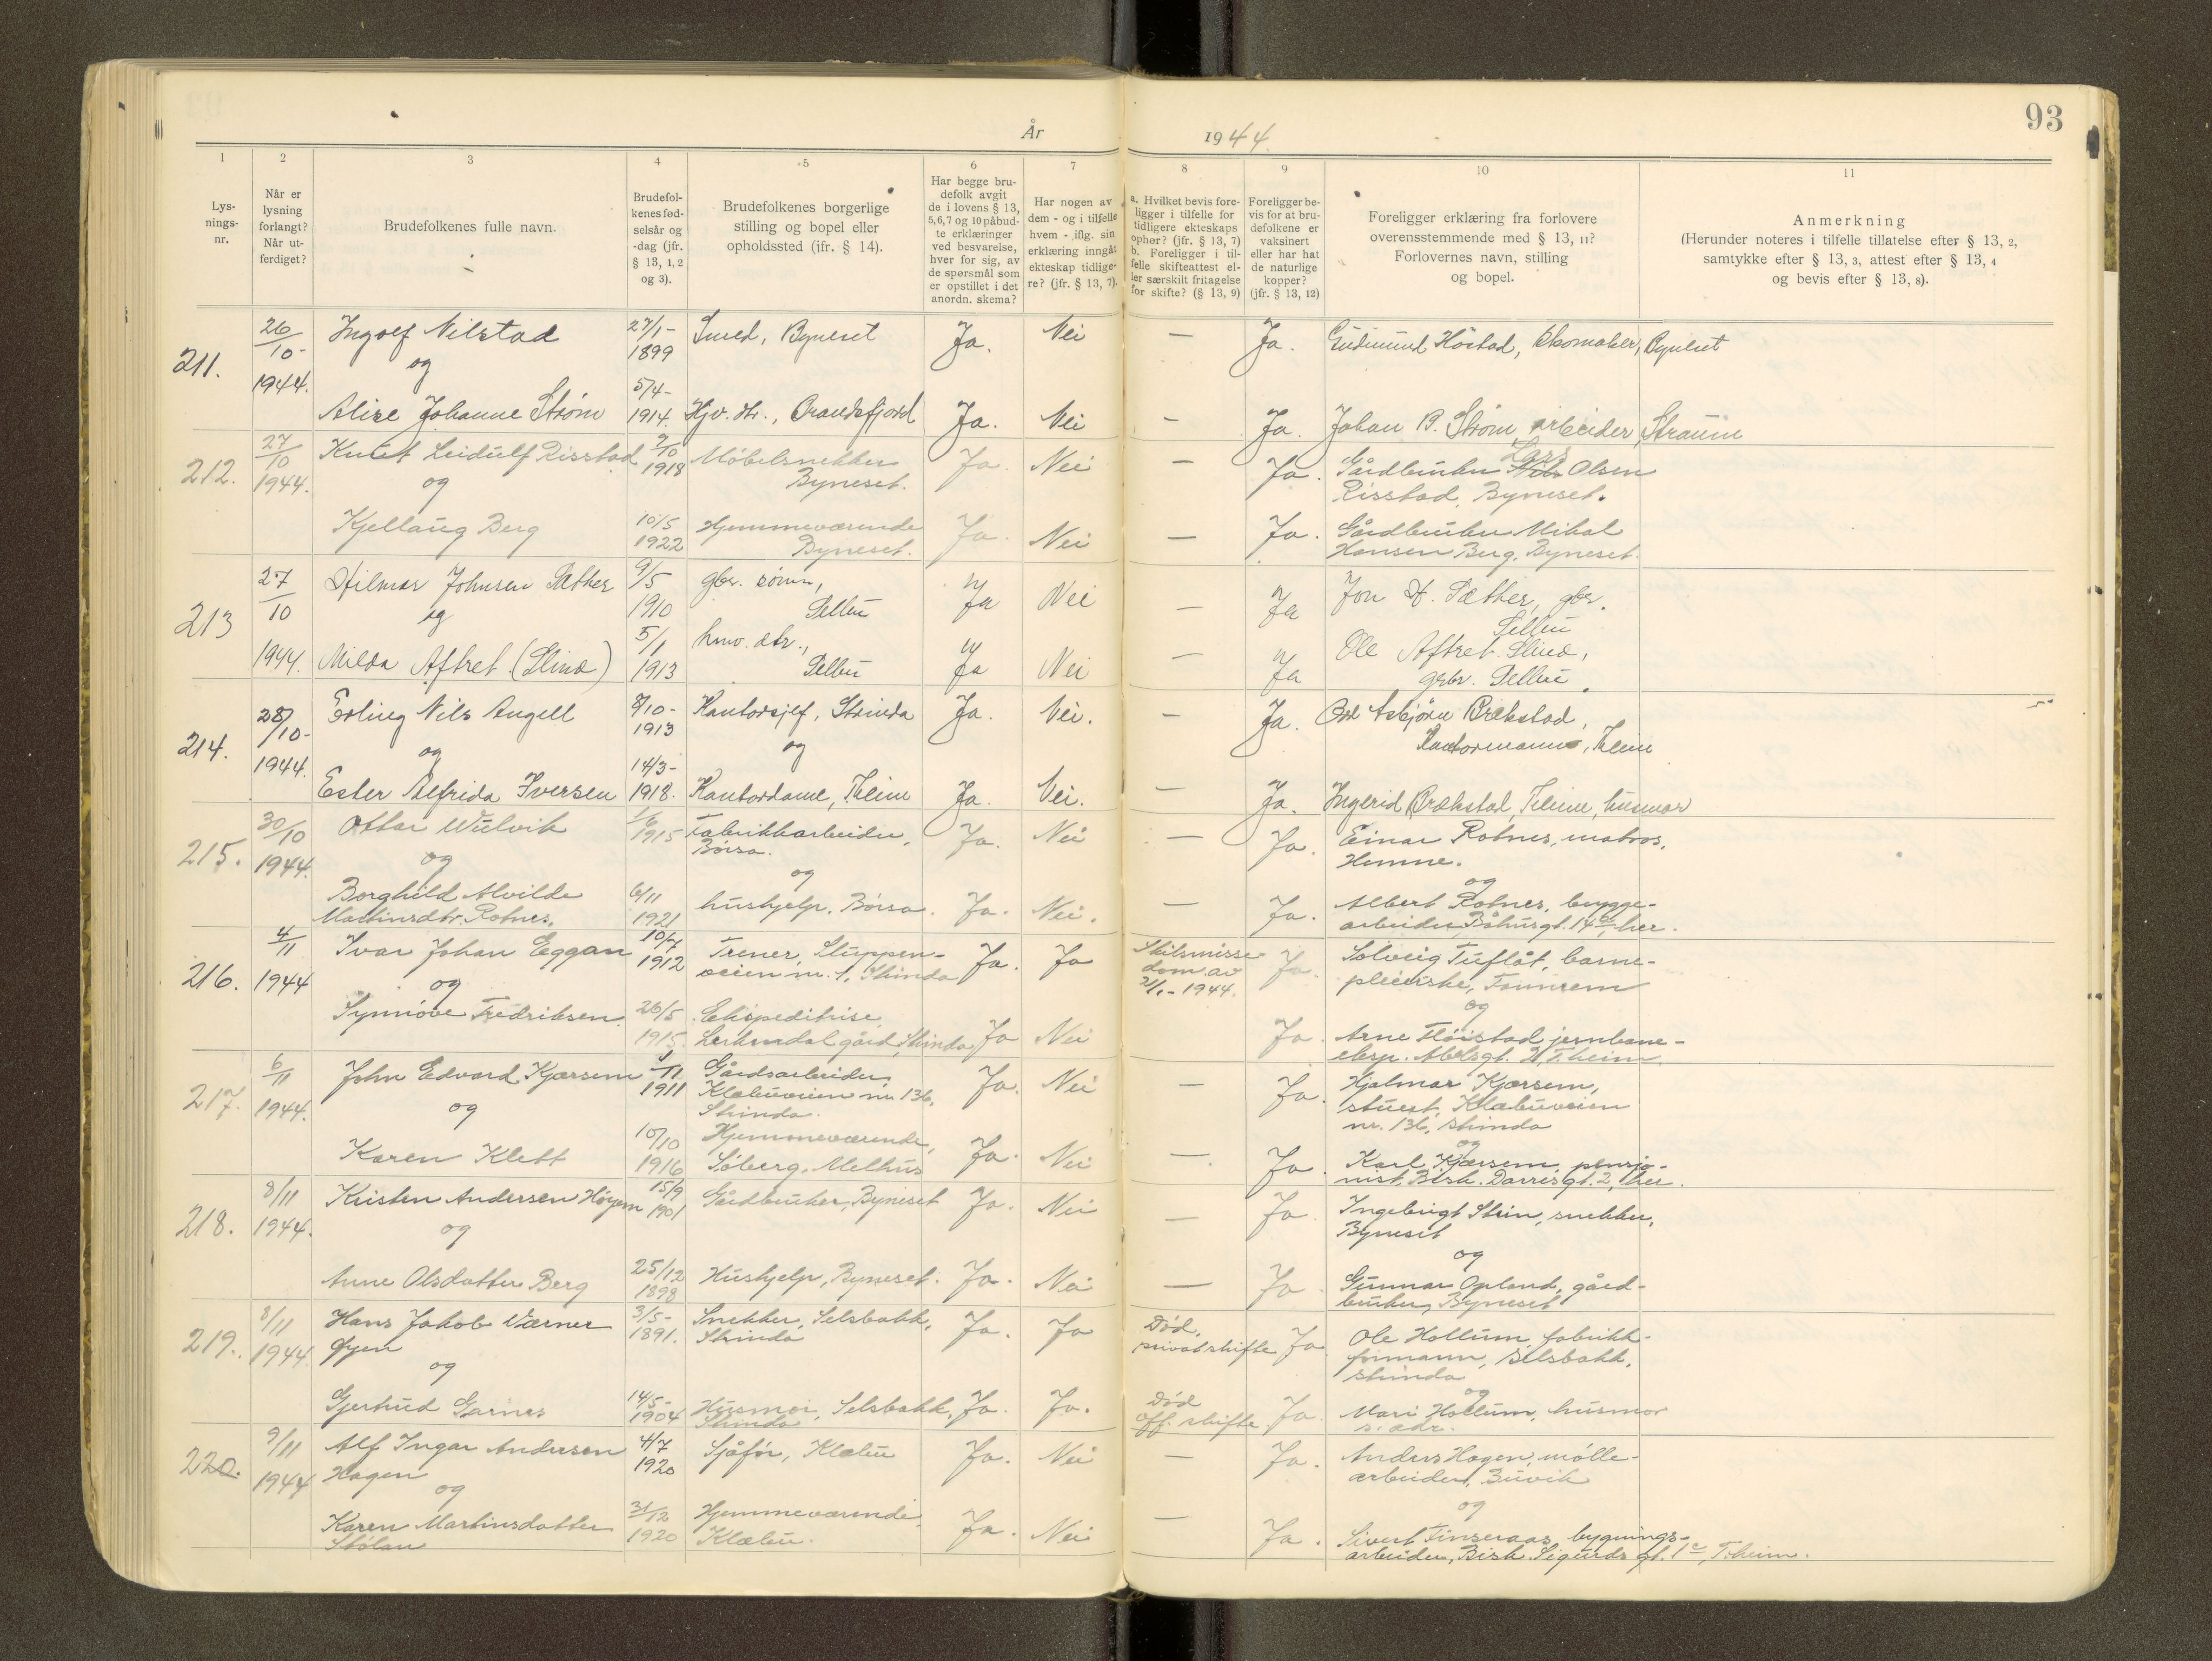 93
År 1944.
1 2 3 4 5 6 7 8 9 10 11
Lys-
nings-
nr.
Når er
lysning
forlangt?
Når ut-
ferdiget?
Brudefolkenes fulle navn.
Brudefol-
kenes fød-
selsår og
-dag (jfr.
§ 13, 1, 2
og 3).
Brudefolkenes borgerlige
stilling og bopel eller
opholdssted (jfr. § 14).
Har begge bru-
defolk avgit
de i lovens § 13,
5, 6, 7 og 10 påbud-
te erklæringer
ved besvarelse,
hver for sig, av
de spørsmål som
er opstillet i det
anordn. skema?
Har nogen av
dem - og i tilfelle
hvem - iflg. sin
erklæring inngåt
ekteskap tidlige-
re? (jfr. § 13, 7).
a. Hvilket bevis fore-
ligger i tilfelle for
tidligere ekteskaps
ophør? (jfr. § 13, 7)
b. Foreligger i til-
felle skifteattest el-
ler særskilt fritagelse
for skifte? (§ 13, 9)
Foreligger be-
vis for at bru-
defolkene er
vaksinert
eller har hat
de naturlige
kopper?
(jfr. § 13, 12)
Foreligger erklæring fra forlovere
overensstemmende med § 13, 11?
Forlovernes navn, stilling
og bopel.
Anmerkning
(Herunder noteres i tilfelle tillatelse efter § 13, 2,
samtykke efter § 13, 3, attest efter § 13, 4
og bevis efter § 13, 8).
211. 26/10- 1944. Ingolf Nilstad 27/1- 1899 Smed, Byneset Ja. Nei — Ja. Gudmund Höstad, skomaker, Byneset
og
Alise Johanne Strøm 5/4- 1914. Hjv. dtr., Ja. Nei — Ja. Johan B. Strøm, arbeider, Straum
212. 27/10 1944. Knut Leidulf Risstad 2/10 1918 Møbelsnekker Byneset. Ja. Nei — Ja. Gårdbruker Lars Olsen
Risstad, Byneset.
og
Kjellaug Berg 10/5 1922 Hjemmeværende Byneset. Ja. Nei — Ja. Gårdbruker Mikal
Hansen Berg, Byneset.
213 27/10 1944. Hilmar Johnsen Sæther 9/5 1910 gbr. sønn, Selbu Ja Nei — Ja Jon H. Sæther, gbr.
Selbu
og
Milda Aftret (Slind) 5/1 1913 hmv. dtr., Selbu Ja Nei — Ja Ole Aftret Slind,
gbr. Selbu.
214. 28/10- 1944. Erling Nils Angell 8/10- 1913 Kontorsjef, Strinda Ja. Nei. — Ja. Asbjørn Brækstad,
Kontormann, Th.eim
og og
Ester Alfrida Iversen 14/3- 1918. Kontordame, Th.eim Ja. Nei. — Ja. Ingerid Brækstad, Th.eim, husmor
215. 30/10 1944. Ottar Wulvik 1/6 1915 Fabrikkarbeider, Børsa. Ja. Nei — Ja. Einar Rotnes, matros,
Hemne.
og og og
Borghild Alvilde
Martinsdtr. Rotnes. 6/11 1921 hushjelp, Børsa. Ja. Nei. — Ja. Albert Rotnes, brygge-
arbeider, Båhusgt. 14 a, her.
216. 4/11 1944 Ivar Johan Eggan 10/7 1912 Trener, Sluppen-
veien nr. 1, Strinda Ja. Ja Skilsmisse
dom av
2/1.- 1944. Ja. Solveig Tuflåt, barne-
pleierske,
og og
Synnøve Fredriksen 26/5 1915. Ekspeditrise
Lerkendal gård, Strinda Ja Nei Ja. Arne Fløistad, jernbane-
eksp. Abelsgt. Th.eim.
217. 6/11 1944. John Edvard Kjørsem 1/11 1911 Gårdsarbeider,
Klæbuveien nr. 136,
Strinda. Ja. Nei — Ja. Hjalmar Kjørsem,
stuert, Klæbuveien
nr. 136, Strinda
og og
Karen Klett 10/10 1916 Hjemmeværende,
Søberg, Melhus Ja. Nei — Ja. Karl Kjørsem, pensjo-
nist, Bisk. Darres gt. 2, her.
218. 8/11 1944. Kristen Andersen Høyem 15/9 1901 Gårdbruker, Byneset Ja. Nei — Ja Ingebrigt Stein, snekker,
Byneset
og og
Anne Olsdatter Berg 25/12 1898 Hushjelp, Byneset. Ja. Nei — Ja. Gunnar Opland, gård-
bruker, Byneset
219. 8/11 1944 Hans Jakob Værner
Øyen 3/5- 1891. Snekker, Selsbakk,
Strinda Ja. Ja Død,
privat skifte Ja. Ole Hollum, fabrikk-
formann, Selsbakk,
Strinda
og og
Gjertrud Garnes 14/5- 1904 Husmor, Selsbakk,
Strinda Ja. Ja. Død
off. skifte Ja. Mari Hollum, husmor
s. adr.
220. 9/11 1944 Alf Ingar Andersen
Hagen 4/7 1920 Sjåfør, Klæbu Ja. Nei — Ja. Anders Hagen, mølle-
arbeider, Buvik
og og
Karen Martinsdatter
Stølan 31/12 1920 Hjemmeværende,
Klæbu. Ja. Nei — Ja. Sivert Finseraas, bygnings-
arbeider, Bisk. Sigurds gt. 1 c, T.heim.